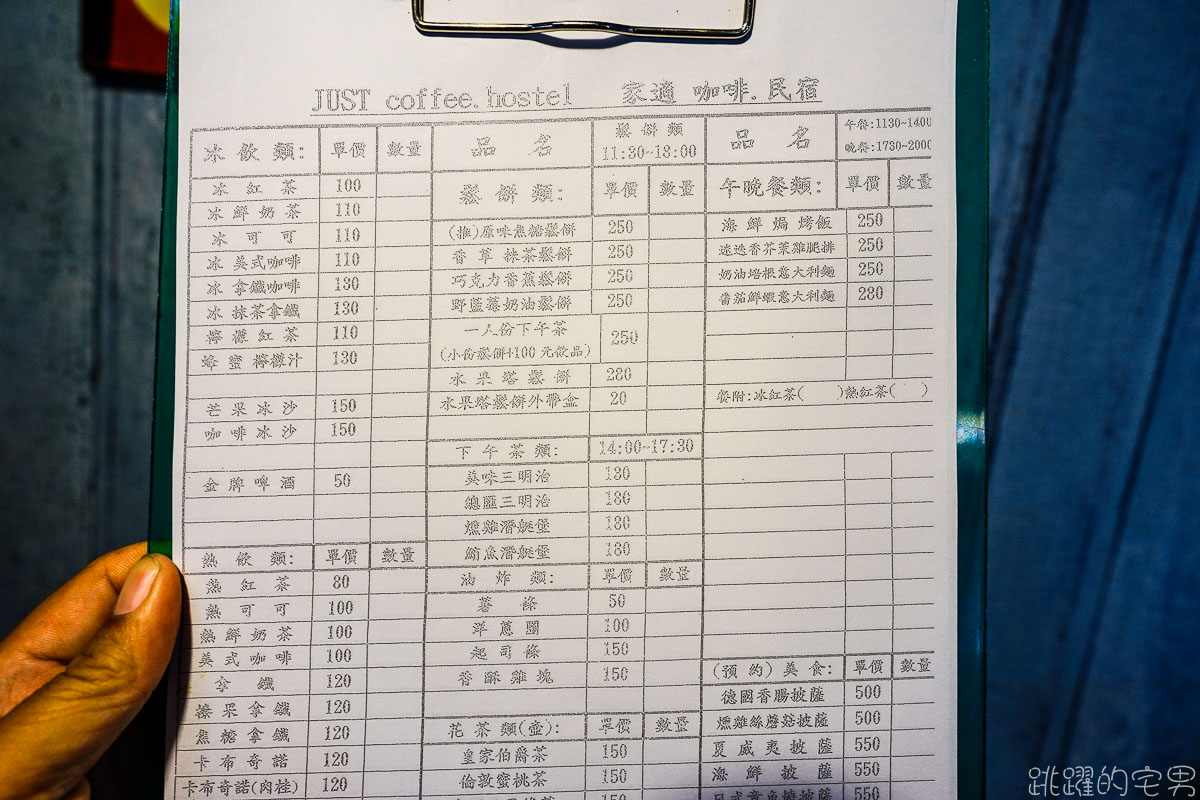 JUST coffee.hostel 家適 咖啡.民宿
冰飲類: 單價 數量
冰紅茶 100
冰鮮奶茶 110
冰可可 110
冰美式咖啡 110
冰拿鐵咖啡 130
冰抹茶拿鐵 130
檸檬紅茶 110
蜂蜜檸檬汁 130
芒果冰沙 150
咖啡冰沙 150
金牌啤酒 50
熱飲類: 單價 數量
熱紅茶 80
熱可可 100
熱鮮奶茶 100
美式咖啡 100
拿鐵 120
榛果拿鐵 120
焦糖拿鐵 120
卡布奇諾 120
卡布奇諾(肉桂) 120
品名 鬆餅類
11:30~18:00
鬆餅類: 單價 數量
(推)原味焦糖鬆餅 250
香草抹茶鬆餅 250
巧克力香蕉鬆餅 250
野藍莓奶油鬆餅 250
一人份下午茶
(小份鬆餅+100元飲品) 250
水果塔鬆餅 280
水果塔鬆餅外帶盒 20
下午茶類: 14:00~17:30
美味三明治 130
總匯三明治 180
燻雞潛艇堡 180
鮪魚潛艇堡 180
油炸類: 單價 數量
薯條 50
洋蔥圈 100
起司條 150
香酥雞塊 150
花茶類(壺): 單價 數量
皇家伯爵茶 150
倫敦蜜桃茶 150
150
品名 午餐:1130~1400
晚餐:1730~2000
午晚餐類: 單價 數量
海鮮焗烤飯 250
迷迭香芥茉雞腿排 250
奶油培根意大利麵 250
番茄鮮蝦意大利麵 280
餐附:冰紅茶( )熱紅茶( )
(預約)美食: 單價 數量
德國香腸披薩 500
燻雞絲蘑菇披薩 500
夏威夷披薩 550
海鮮披薩 550
日式章魚燒披薩 550
跳躍的宅男